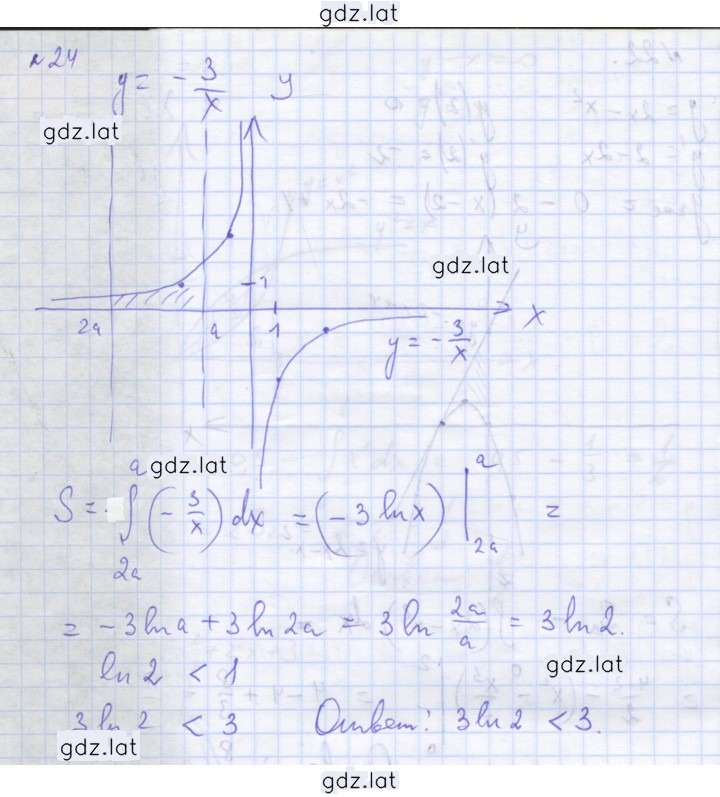 gdz.lat
№24
y = -3/x
y
gdz.lat
gdz.lat
1
2a a 1 x
y = -3/x
gdz.lat
S = ∫_{2a}^{a} (-3/x) dx = (-3 ln x) |_{2a}^{a} =
= -3 ln a + 3 ln 2a = 3 ln 2a/a = 3 ln 2.
ln 2 < 1
gdz.lat
3 ln 2 < 3 Ответ: 3 ln 2 < 3.
gdz.lat
gdz.lat